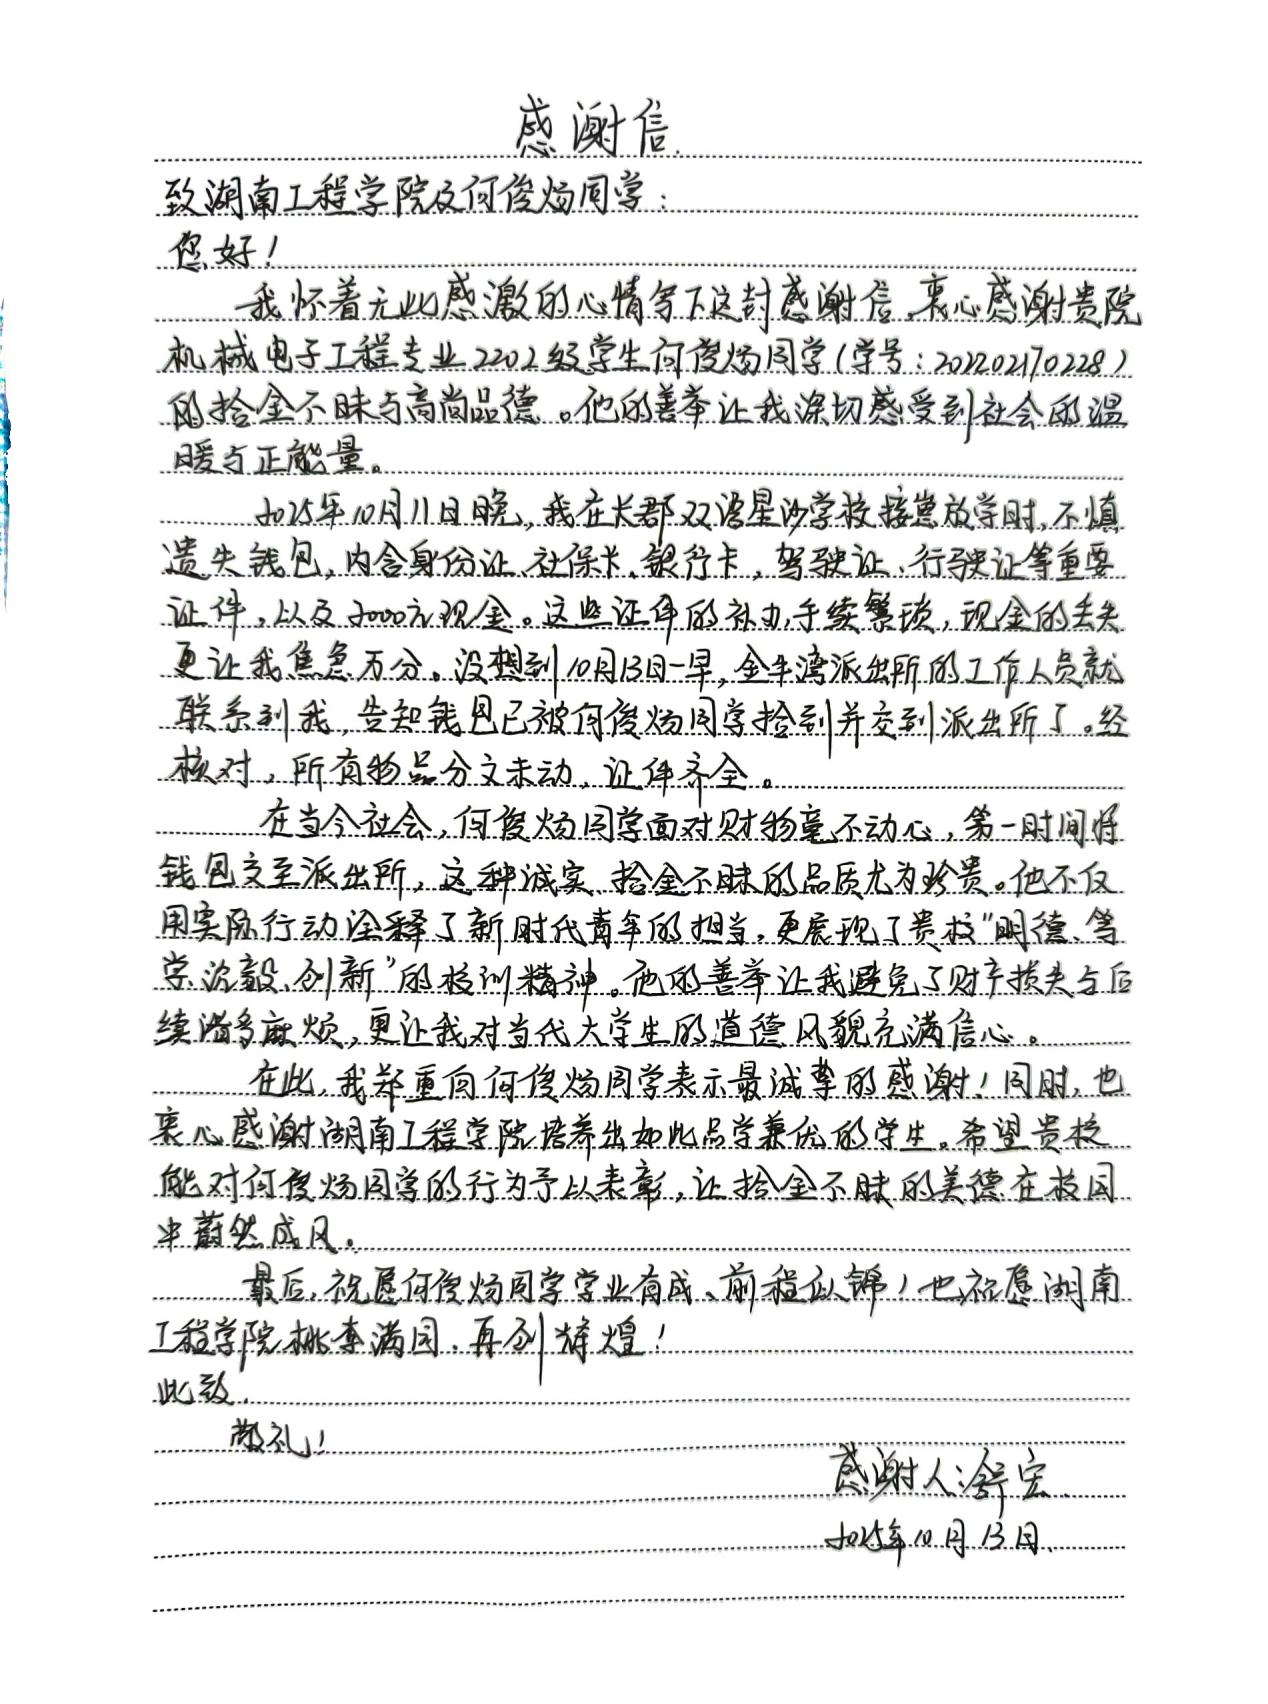 感谢信.
致湖南工程学院及何俊炀同学：
您好！
我怀着无比感激的心情写下这封感谢信，衷心感谢贵院
机械电子工程专业2202级学生何俊炀同学（学号：202202170228）
的拾金不昧与高尚品德。他的善举让我深切感受到社会的温
暖与正能量。
2025年10月11日晚，我在长郡双语星沙学校接崽放学时，不慎
遗失钱包，内含身份证、社保卡、银行卡，驾驶证、行驶证等重要
证件，以及2000元现金。这些证件的补办手续繁琐，现金的丢失
更让我焦急万分。没想到10月13日一早，金牛湾派出所的工作人员就
联系到我，告知钱包已被何俊炀同学捡到并交到派出所了。经
核对，所有物品分文未动，证件齐全。
在当今社会，何俊炀同学面对财物毫不动心，第一时间将
钱包交至派出所，这种诚实、拾金不昧的品质尤为珍贵。他不仅
用实际行动诠释了新时代青年的担当，更展现了贵校“明德、笃
学、沉毅、创新”的校训精神。他的善举让我避免了财产损失与后
续诸多麻烦，更让我对当代大学生的道德风貌充满信心。
在此，我郑重向何俊炀同学表示最诚挚的感谢！同时，也
衷心感谢湖南工程学院培养出如此品学兼优的学生。希望贵校
能对何俊炀同学的行为予以表彰，让拾金不昧的美德在校园
中蔚然成风。
最后，祝愿何俊炀同学学业有成、前程似锦！也祝愿湖南
工程学院桃李满园，再创辉煌！
此致.
敬礼！
感谢人：舒宏
2025年10月13日.